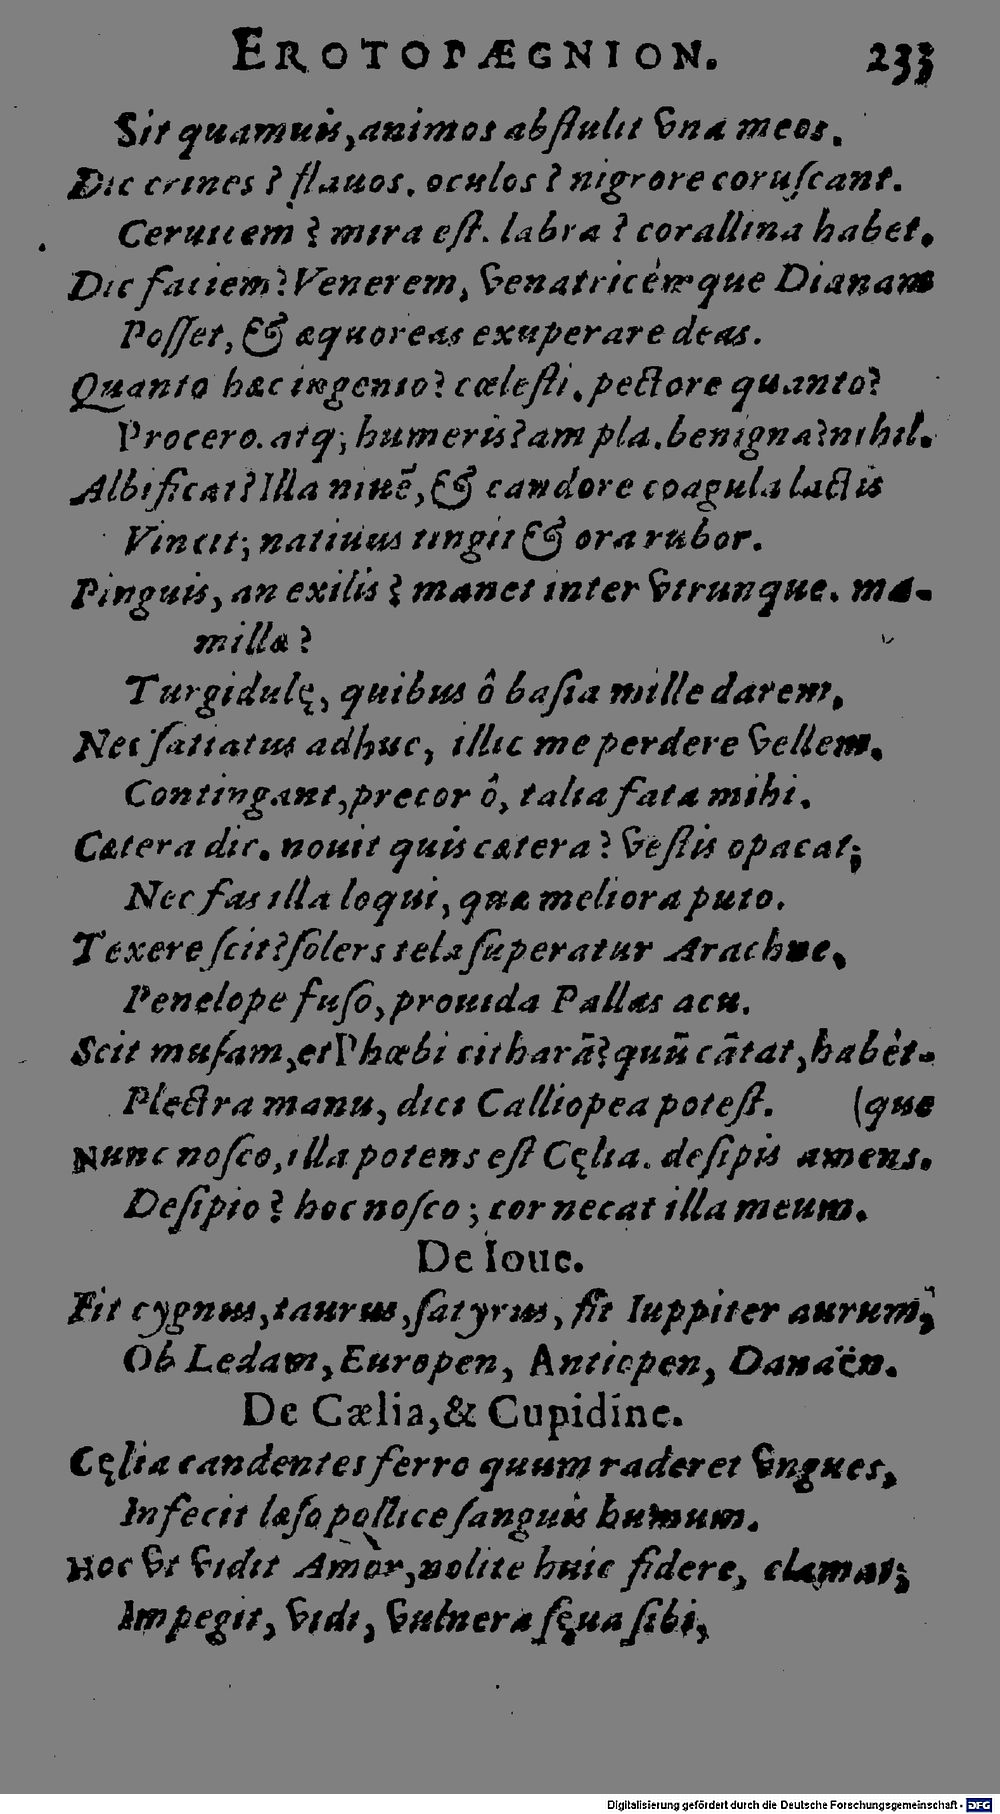 EROTOPÆGNION. 233
Sit quamuis, animos abſtulit vna meos.
Dic crines? flauos. oculos? nigrore coruſcant.
Ceruicem? mira eſt. labra? corallina habet.
Dic faciem? Venerem, venatricémque Dianam
Poſſet, & æquoreas exuperare deas.
Quanto hæc ingenio? cœleſti. pectore quanto?
Procero. atq; humeris? ampla. benigna? nihil.
Albificat? Illa niuē, & candore coagula lactis
Vincit; natiuus tingit & ora rubor.
Pinguis, an exilis? manet inter vtrunque. ma-
millæ?
Turgidulę, quibus ô baſia mille darem,
Nec ſatiatus adhuc, illic me perdere vellem.
Contingant, precor ô, talia fata mihi.
Cætera dic. nouit quis cætera? veſtis opacat;
Nec fas illa loqui, quæ meliora puto.
Texere ſcit? ſolers tela ſuperatur Arachne,
Penelope fuſo, prouida Pallas acu.
Scit muſam, et Phœbi citharā? quū cātat, habét-
Plectra manu, dici Calliopea poteſt. (que
Nunc noſco, illa potens eſt Cęlia. deſipis amens.
Deſipio? hoc noſco; cor necat illa meum.
De Ioue.
Fit cygnus, taurus, ſatyrus, fit Iuppiter aurum,
Ob Ledam, Europen, Antiopen, Danaën.
De Cælia, & Cupidine.
Cęlia candentes ferro quum raderet vngues,
Infecit læſo pollice ſanguis humum.
Hoc vt vidit Amor, nolite huic fidere, clamat;
Impegit, vidi, vulnera ſęua ſibi,
Digitalisierung gefördert durch die Deutsche Forschungsgemeinschaft - DFG